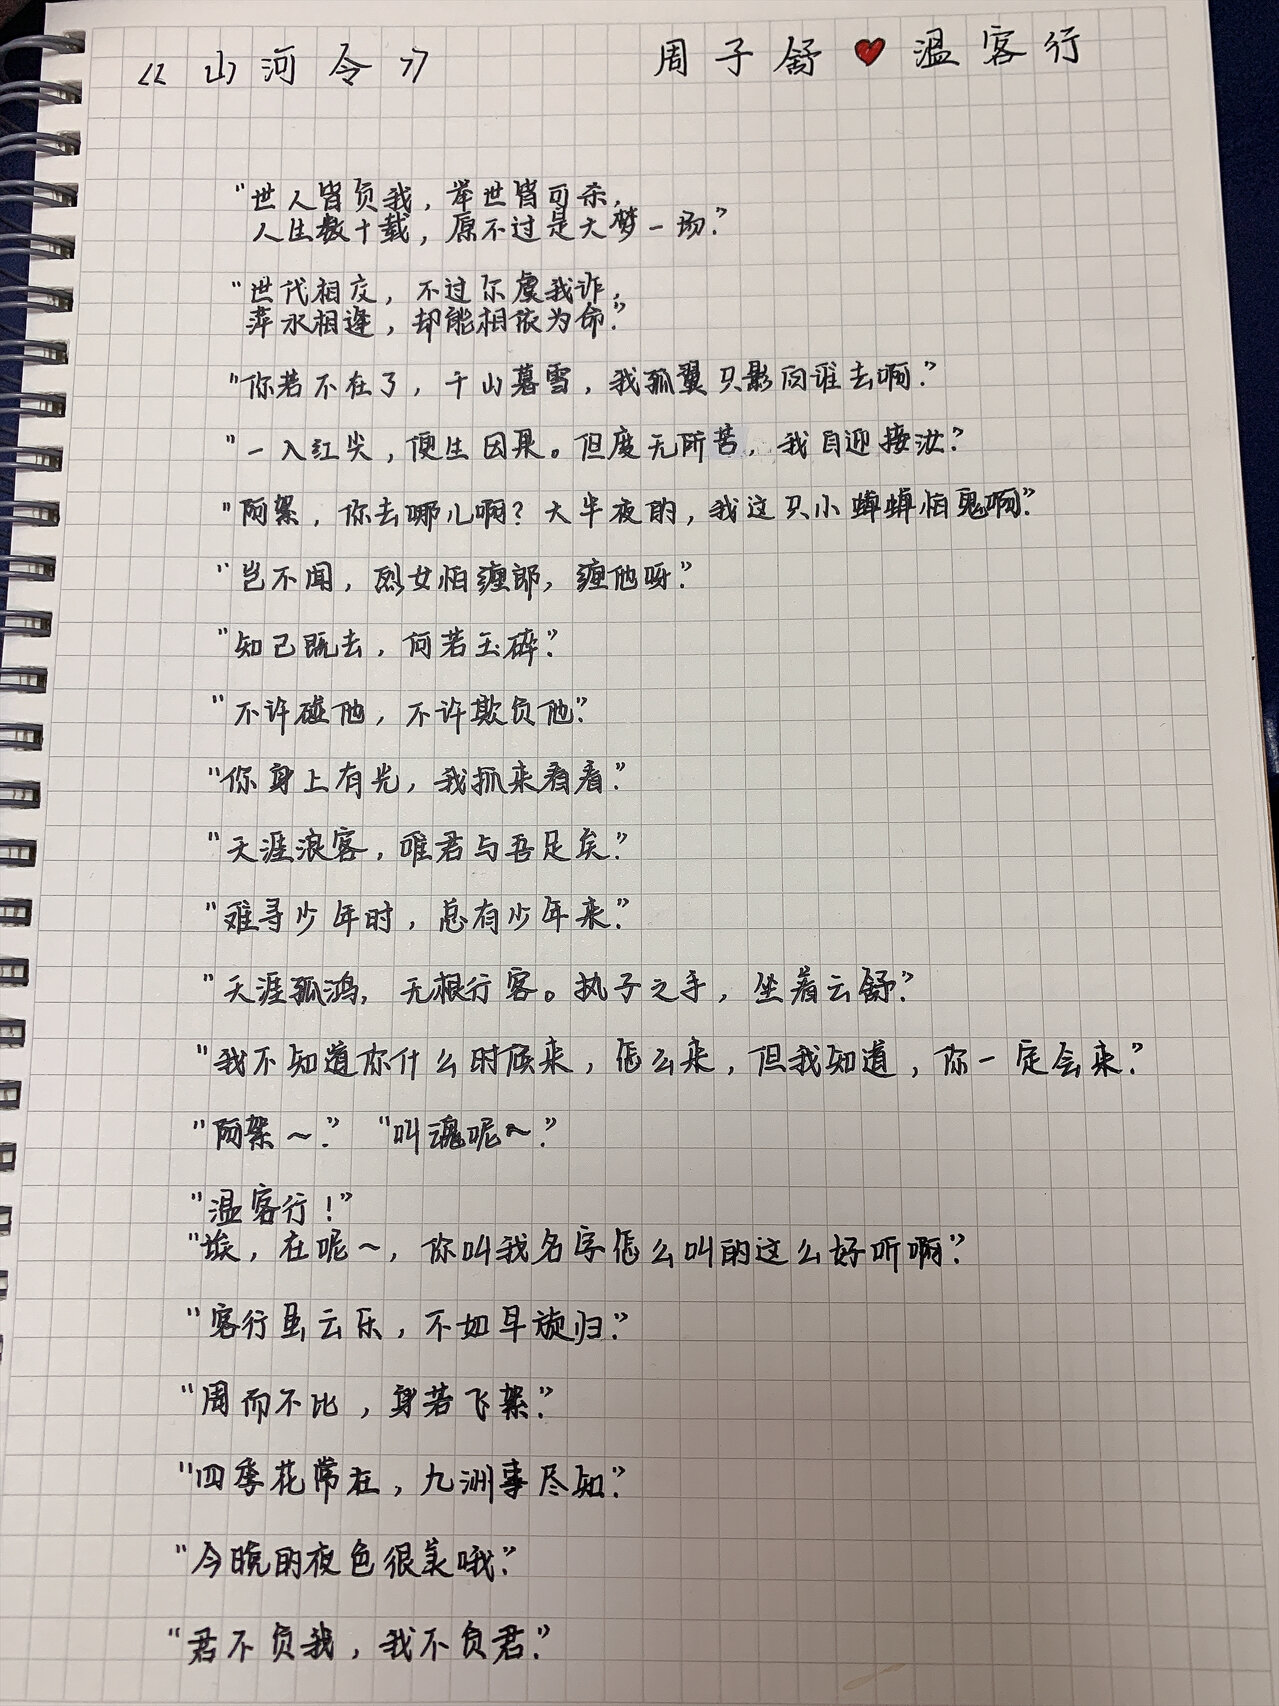 《山河令》 周子舒❤温客行
“世人皆负我，举世皆可杀，
人生数十载，原不过是大梦一场。”
“世代相交，不过尔虞我诈，
萍水相逢，却能相依为命。”
“你若不在了，千山暮雪，我孤翼只影向谁去啊。”
“一入红尘，便生因果。但度无所苦，我自迎接汝。”
“阿絮，你去哪儿啊？大半夜的，我这只小蝉蝉怕鬼啊。”
“岂不闻，烈女怕缠郎，缠他呀。”
“知己既去，何若玉碎。”
“不许碰他，不许欺负他。”
“你身上有光，我抓来看看。”
“天涯浪客，唯君与吾足矣。”
“难寻少年时，总有少年来。”
“天涯孤鸿，无根行客。执子之手，坐着云舒。”
“我不知道你什么时候来，怎么来，但我知道，你一定会来。”
“阿絮～。” “叫魂呢～。”
“温客行！”
“埃，在呢～，你叫我名字怎么叫的这么好听啊。”
“客行虽云乐，不如早旋归。”
“周而不比，身若飞絮。”
“四季花常在，九洲事尽知。”
“今晚的夜色很美哦。”
“君不负我，我不负君。”